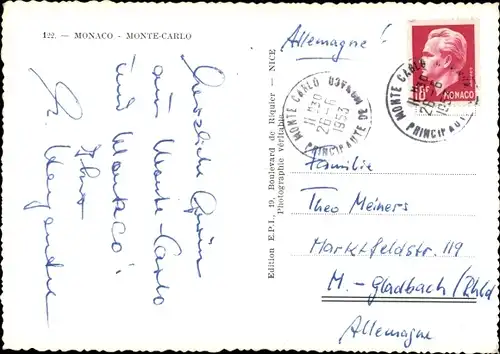 122. — MONACO - MONTE-CARLO
Herzliche Grüße
aus Monte-Carlo
und Monaco!
Ihre
Edition E.P.I., 19, Boulevard de Riquier — NICE
Photographie véritable
Allemagne!
MONTE CARLO
11H30
26-6
1953
PRINCIPAUTE DE MONACO
MONACO
MONTE CARLO
11H30
26-6
PRINCIPAUTE
Familie
Theo Meiners
Marktfeldstr. 119
M.-Gladbach/Rhld
Allemagne